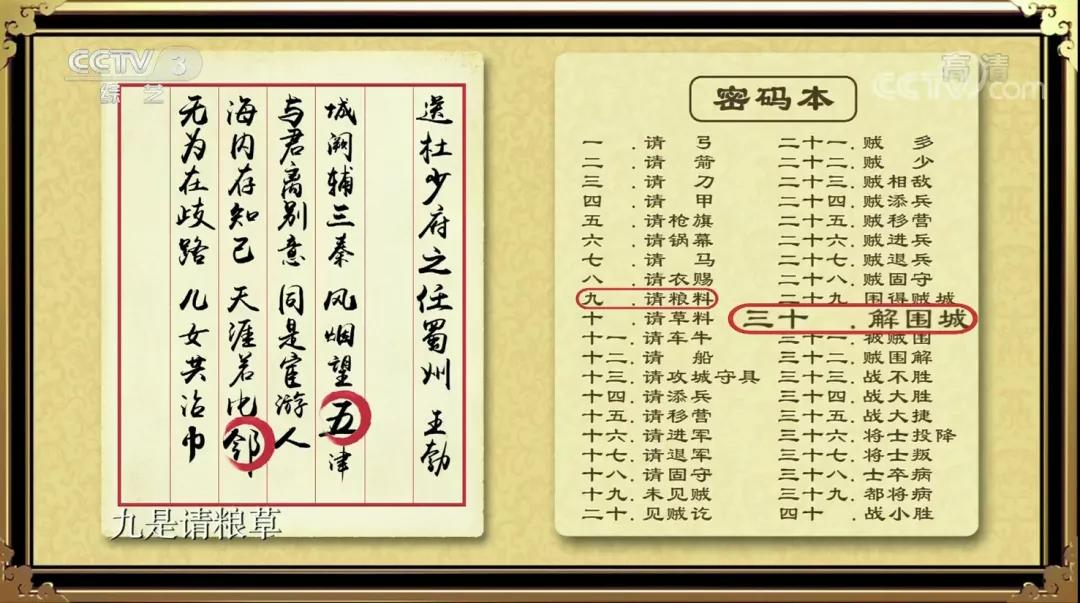 CCTV 3
综艺
高清
CCTV.com
送杜少府之任蜀州 王勃
城阙辅三秦 风烟望五津
与君离别意 同是宦游人
海内存知己 天涯若比邻
无为在歧路 儿女共沾巾
密码本
一.请弓
二.请箭
三.请刀
四.请甲
五.请枪旗
六.请锅幕
七.请马
八.请衣赐
九.请粮料
十.请草料
十一.请车牛
十二.请船
十三.请攻城守具
十四.请添兵
十五.请移营
十六.请进军
十七.请退军
十八.请固守
十九.未见贼
二十.见贼讫
二十一.贼多
二十二.贼少
二十三.贼相敌
二十四.贼添兵
二十五.贼移营
二十六.贼进兵
二十七.贼退兵
二十八.贼固守
二十九.围得贼城
三十.解围城
三十一.被贼围
三十二.贼围解
三十三.战不胜
三十四.战大胜
三十五.战大捷
三十六.将士投降
三十七.将士叛
三十八.士卒病
三十九.都将病
四十.战小胜
九是请粮草